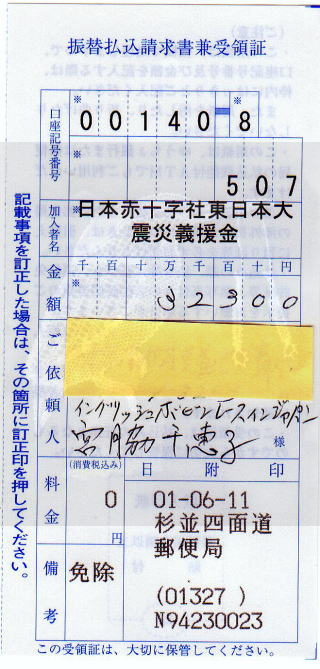 振替払込請求書兼受領証
口座記号番号
※ 00140-8 ※
※ 507
加入者名
※ 日本赤十字社東日本大
震災義援金
金額
千 百 十 万 千 百 十 円
※ 32300
ご依頼人
イングリッシュボビンレースインジャパン
宮脇千恵子 様
料金
(消費税込み)
0
円
日 附 印
01-06-11
杉並四面道
郵便局
(01327 )
N94230023
備考
免除
記載事項を訂正した場合は、その箇所に訂正印を押してください。
この受領証は、大切に保管してください。